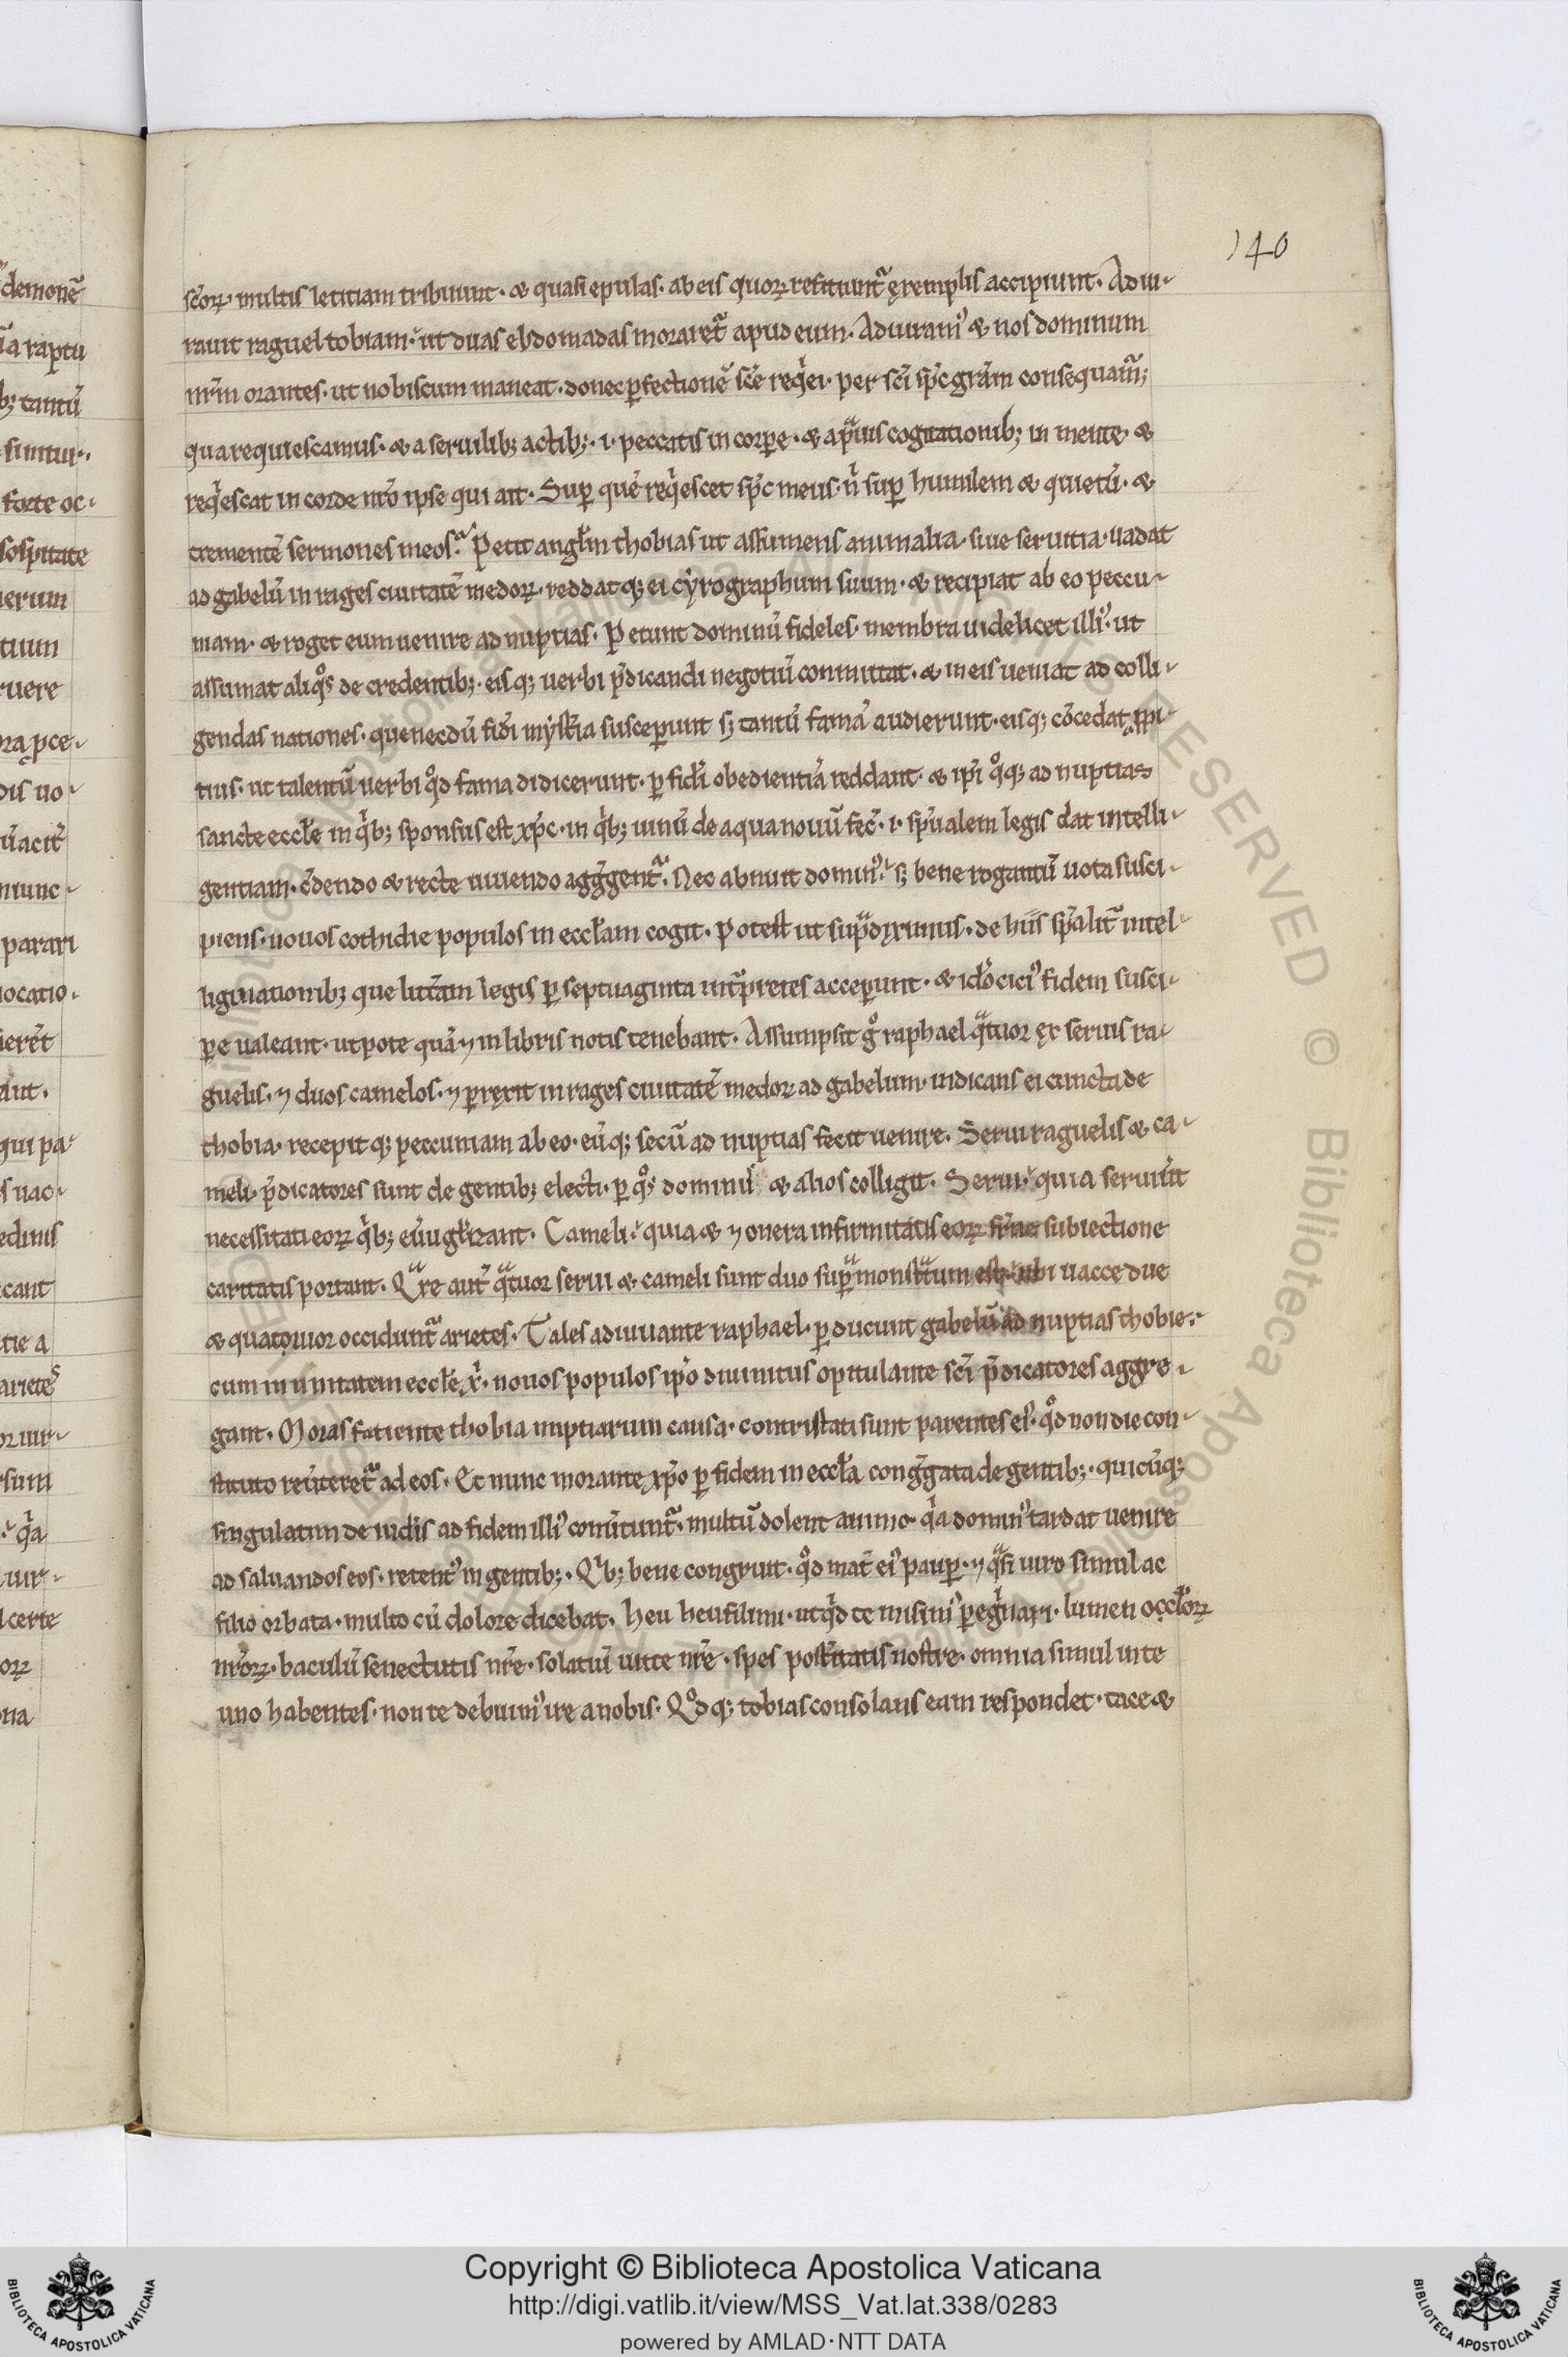 140
sc̄oꝝ multis letitiam tribuunt · ⁊ quasi epulas · ab eis quoꝝ reficiunt᷑ exemplis accipiunt · Adiu-
rauit raguel tobiam · ut duas ebdomadas moraret᷑ apud eum · Adiuramꝰ ⁊ nos dominum
nr̄m orantes · ut nobiscum maneat · donec ꝑfectionē sc̄e reqͥei · per sc̄i sp̄c gr̄am consequam᷑;
qua requiescamus · ⁊ a seruilib; actib; · i · peccatis in corꝑe · ⁊ a pͣuis cogitationib; in mente · ⁊
reqͥescat in corde nr̄o ipse qui ait · Suꝑ quē reqͥescet sp̄c meus · nͥ suꝑ humilem ⁊ quietū · ⁊
trementē sermones meos · Petit angl̄m thobias ut assumens animalia · siue seruitia · uadat
ad gabelū in rages ciuitatē medoꝝ · reddatq; ei cyrographum suum · ⁊ recipiat ab eo peccu-
niam · ⁊ roget eum uenire ad nuptias · Petunt dominū fideles · membra uidelicet illiꝰ · ut
assumat aliqͦs de credentib; · eisq; uerbi p̄dicandi negotiū conmittat · ⁊ in eis ueniat ad colli-
gendas nationes · que necdū fidi mysteria susceꝑunt s; tantū famā audierunt · eisq; cōcedat ppi-
tius · ut talentū uerbi qͦd fama didicerunt · ꝑ fidei obedientiā reddant · ⁊ ip̄i qͦq; ad nuptias
sancte eccl̄e in qͥb; sponsus est xp̄c · in qͥb; uinū de aqua nouū fec̄ · i · sp̄ualem legis dat intelli-
gentiam · c̄dendo ⁊ recte uiuendo agḡgent᷑ · Nec abnuit dominꝰ · s; bene rogantū uota susci-
piens · nouos cothidie populos in eccl̄am cogit · Potest ut supͣ diximus · de hiis sp̄alit̄ intel-
ligi nationib; que litt̄am legis ꝑ septuaginta int̄pretes acceꝑunt · ⁊ idͦ ciciꝰ fidem susci-
ꝑe ualeant · utpote quā ⁊ in libris notis tenebant · Assumpsit gͦ raphael qͣtuor ex seruis ra-
guelis · ⁊ duos camelos · ⁊ ꝑrexit in rages ciuitatē medoꝝ ad gabelum · indicans ei cuncta de
thobia · recepitq; peccuniam ab eo · eūq; secū ad nuptias fecit uenire · Serui raguelis ⁊ ca-
meli · p̄dicatores sunt de gentib; electi · ꝑ qͦs dominꝰ ⁊ alios colligit · Serui · quia seruiūt
necessitati eoꝝ qͥb; eu̅ugl̄izant · Cameli · quia ⁊ ⁊ onera infirmitatis eoꝝ subiectione
caritatis portant · Qͣre aut̄ qͣtuor serui ⁊ cameli sunt duo supͣ monstͣtum est · ubi uacce due
⁊ quatouor occidunt᷑ arietes · Tales adiuuante raphael · ꝑducunt gabelū ad nuptias thobie ·
cum in unitatem eccl̄e x̄ · nouos populos ip̄o diuinitus opitulante sc̄i p̄dicatores aggre-
gant · Moras faciente thobia nuptiarum causa · contristati sunt parentes eiꝰ · qͦd non die con-
stituto reūteret᷑ ad eos · Et nunc morante xp̄o ꝑ fidem in eccl̄a congḡgata de gentib; · quicūq;
singulatim de iudeis ad fidem illiꝰ conūtunt᷑ · multū dolent animo · qͥa dominꝰ tardat uenire
ad saluandos eos · retentꝰ in gentib; · Qͥb; bene congruit · qͦd mat̄ eiꝰ pauꝑ · ⁊ qͣsi uiro simul ac
filio orbata · multo cū dolore dicebat · heu heu fili mi · utqͥd te misimꝰ ꝑegͥnari · lumen occl̄oꝝ
nr̄oꝝ · baculū senectutis nr̄e · solatiū uite nr̄e · spes post̄itatis nostre · omnia simul in te
uno habentes · non te debuimꝰ ire a nobis · Qͦdq; tobias consolans eam respondet · tace ⁊
Copyright © Biblioteca Apostolica Vaticana
http://digi.vatlib.it/view/MSS_Vat.lat.338/0283
powered by AMLAD·NTT DATA